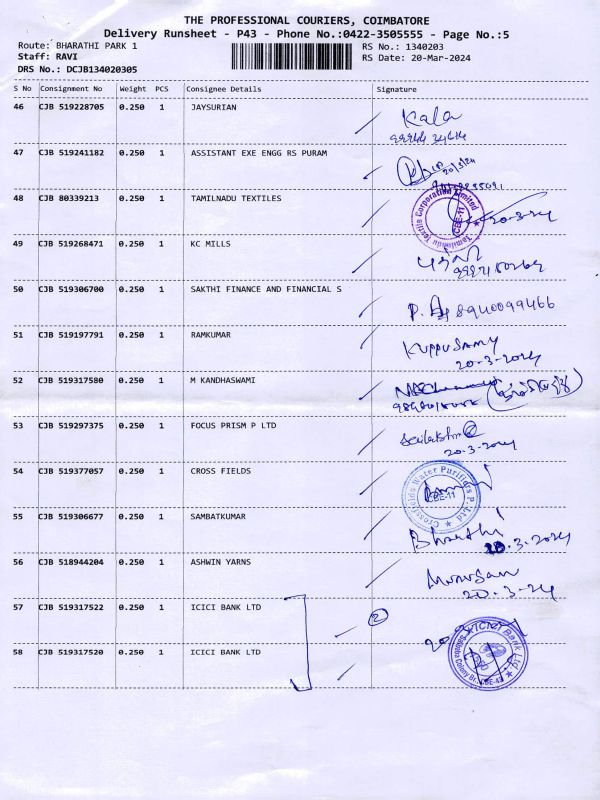 THE PROFESSIONAL COURIERS, COIMBATORE
Delivery Runsheet - P43 - Phone No.:0422-3505555 - Page No.:5
Route: BHARATHI PARK 1
RS No.: 1340203
Staff: RAVI
RS Date: 20-Mar-2024
DRS No.: DCJB134020305
S No Consignment No Weight PCS Consignee Details Signature
46 CJB 519228705 0.250 1 JAYSURIAN Kala
47 CJB 519241182 0.250 1 ASSISTANT EXE ENGG RS PURAM 20/3/24
48 CJB 80339213 0.250 1 TAMILNADU TEXTILES 20-3-24
Tamilnadu Textile Corporation Limited CBE-11
49 CJB 519268471 0.250 1 KC MILLS
50 CJB 519306700 0.250 1 SAKTHI FINANCE AND FINANCIAL S 8940099466
51 CJB 519197791 0.250 1 RAMKUMAR KUPPUSAMY
20-3-2024
52 CJB 519317580 0.250 1 M KANDHASWAMI
53 CJB 519297375 0.250 1 FOCUS PRISM P LTD
20-3-2024
54 CJB 519377057 0.250 1 CROSS FIELDS
Crossfields Water Purifiers P. Ltd CBE-11
55 CJB 519306677 0.250 1 SAMBATKUMAR Bharathi
20.3.2024
56 CJB 518944204 0.250 1 ASHWIN YARNS Murugan
20-3-24
57 CJB 519317522 0.250 1 ICICI BANK LTD 2
58 CJB 519317520 0.250 1 ICICI BANK LTD
ICICI Bank Ltd Saibaba Colony Br. CBE-43